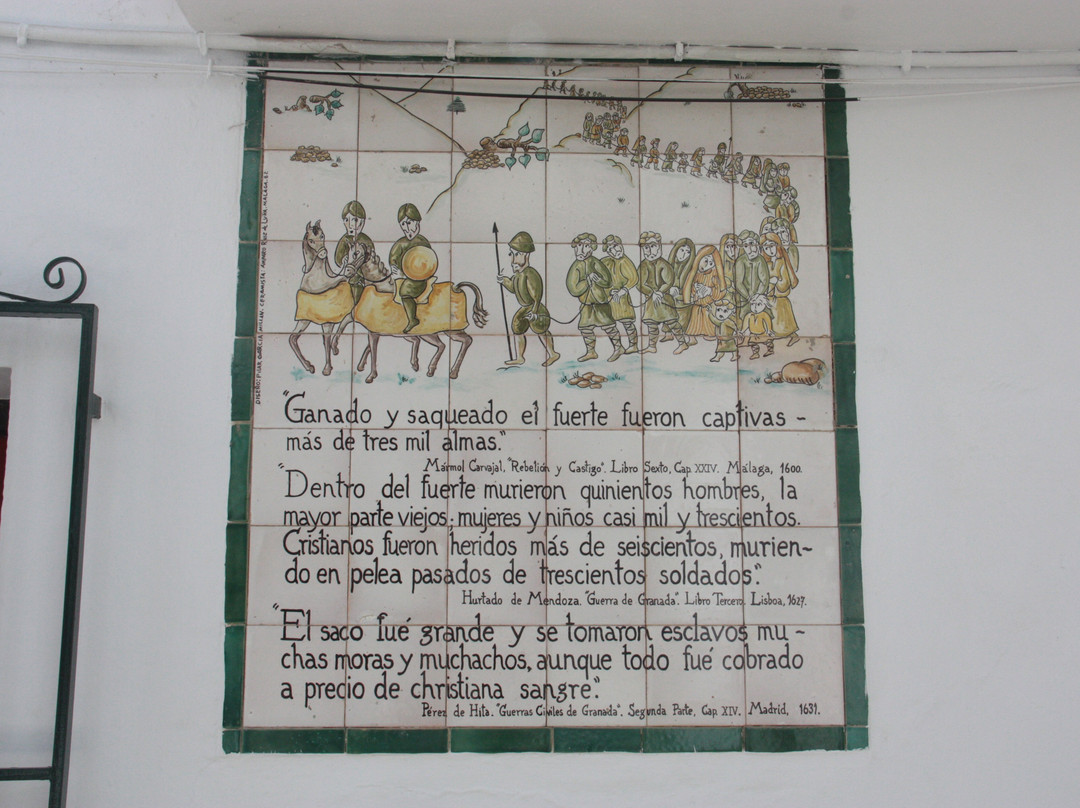 "Ganado y saqueado el fuerte fueron captivas -
más de tres mil almas."
Mármol Carvajal, "Rebelión y Castigo". Libro Sexto, Cap. XXIV. Málaga, 1600.
"Dentro del fuerte murieron quinientos hombres, la
mayor parte viejos; mujeres y niños casi mil y trescientos.
Cristianos fueron heridos más de seiscientos, murien-
do en pelea pasados de trescientos soldados".
Hurtado de Mendoza. "Guerra de Granada". Libro Tercero. Lisboa, 1627.
"El saco fué grande y se tomaron esclavos mu-
chas moras y muchachos, aunque todo fué cobrado
a precio de christiana sangre".
Pérez de Hita. "Guerras Civiles de Granada". Segunda Parte, Cap. XIV. Madrid, 1631.
DISEÑO: PILAR GARCIA MILLAN. CERAMISTA: AMPARO